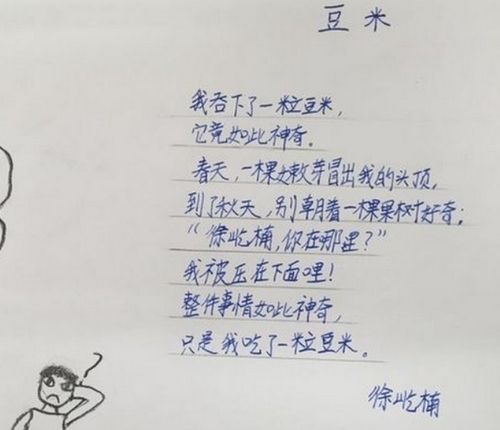 豆米
我吞下了一粒豆米,
它竟如此神奇。
春天,一棵嫩芽冒出我的头顶,
到了秋天,别朝着一棵果树好奇;
“徐屹楠,你在哪里?”
我被压在下面哩!
整件事情如此神奇,
只是我吃了一粒豆米。
徐屹楠
?